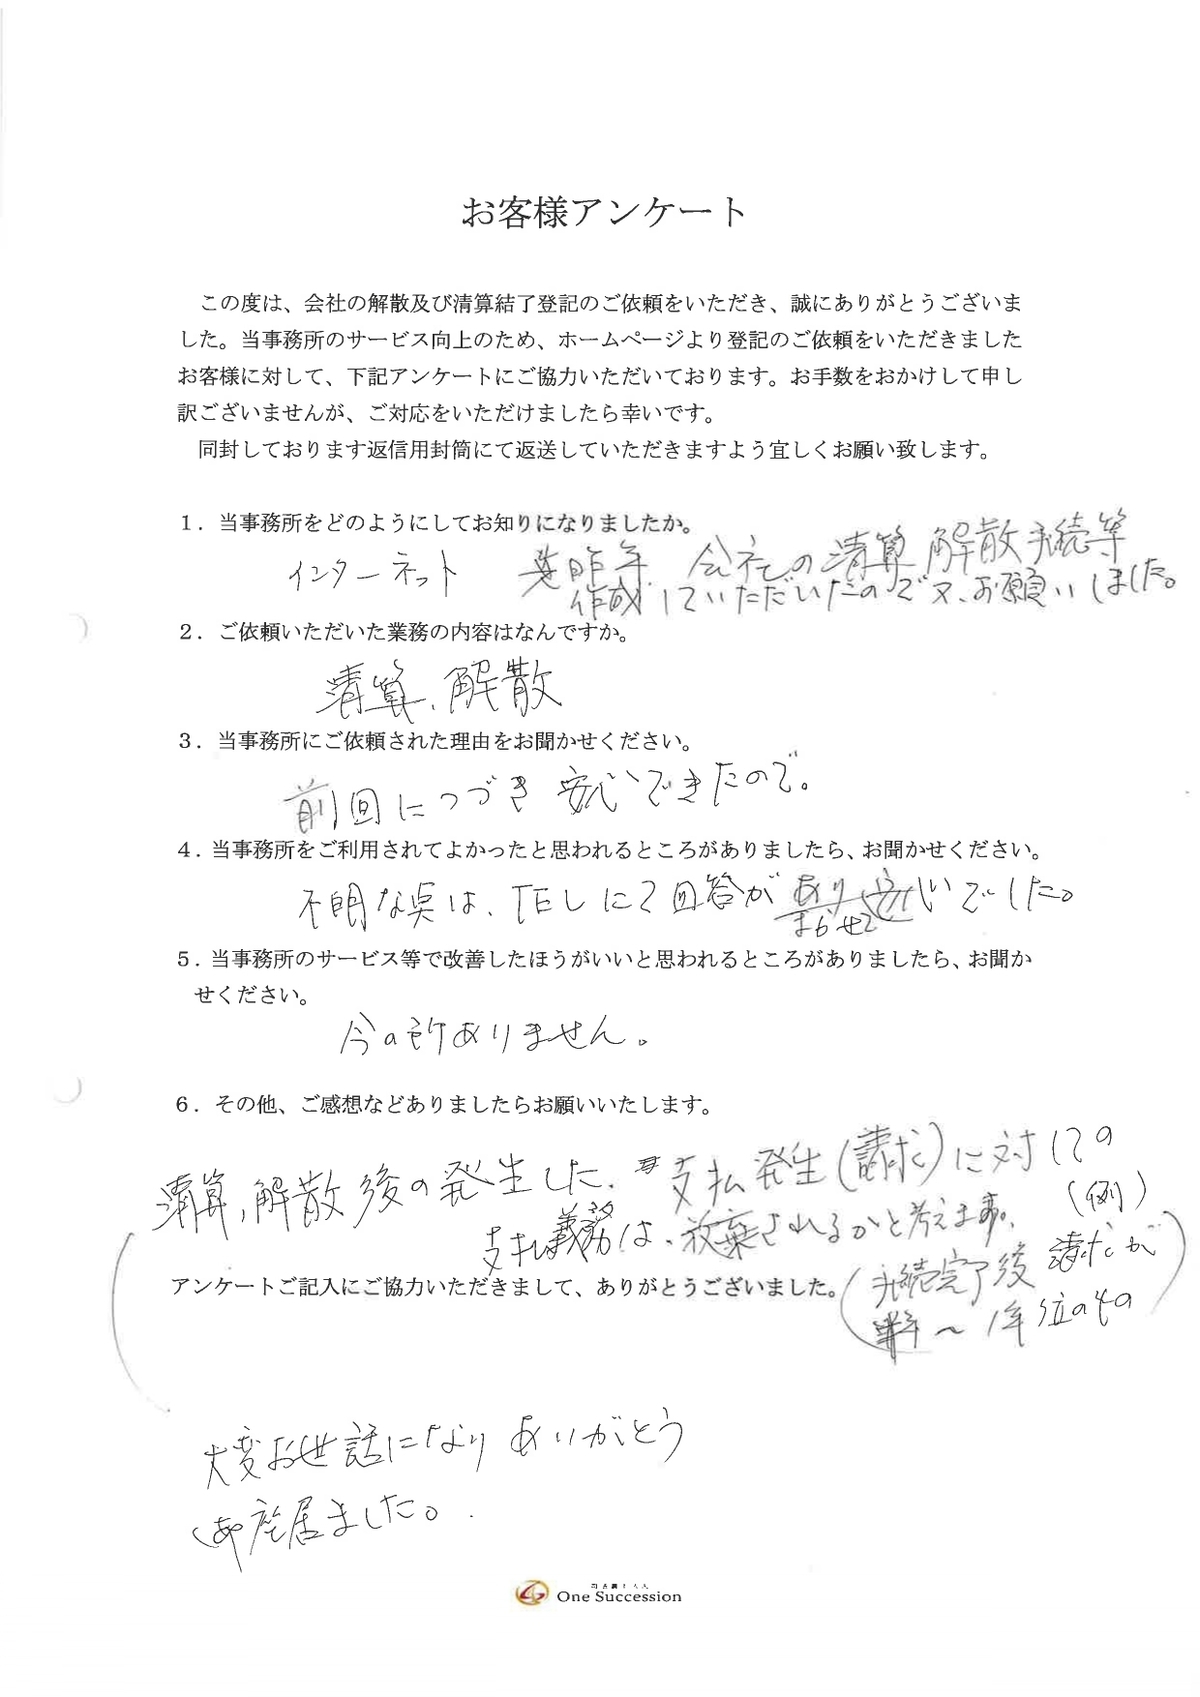 お客様アンケート
この度は、会社の解散及び清算結了登記のご依頼をいただき、誠にありがとうございま
した。当事務所のサービス向上のため、ホームページより登記のご依頼をいただきました
お客様に対して、下記アンケートにご協力いただいております。お手数をおかけして申し
訳ございませんが、ご対応をいただけましたら幸いです。
同封しております返信用封筒にて返送していただきますよう宜しくお願い致します。
１．当事務所をどのようにしてお知りになりましたか。
インターネット
昨年 会社の清算 解散手続等
作成していただいたので又、お願いしました。
２．ご依頼いただいた業務の内容はなんですか。
清算、解散
３．当事務所にご依頼された理由をお聞かせください。
前回につづき 安心できたので。
４．当事務所をご利用されてよかったと思われるところがありましたら、お聞かせください。
不明な点は、TELにて回答があり 安心でした。
まかせて
５．当事務所のサービス等で改善したほうがいいと思われるところがありましたら、お聞か
せください。
今の所ありません。
６．その他、ご感想などありましたらお願いいたします。
清算、解散後の発生した、支払発生(請求)に対しての
支払義務は、放棄されるかと考えます。
(例)
アンケートご記入にご協力いただきまして、ありがとうございました。
(手続完了後 請求が
半年～1年位のもの)
大変お世話になり ありがとう
御座居ました。
司法書士法人
One Succession